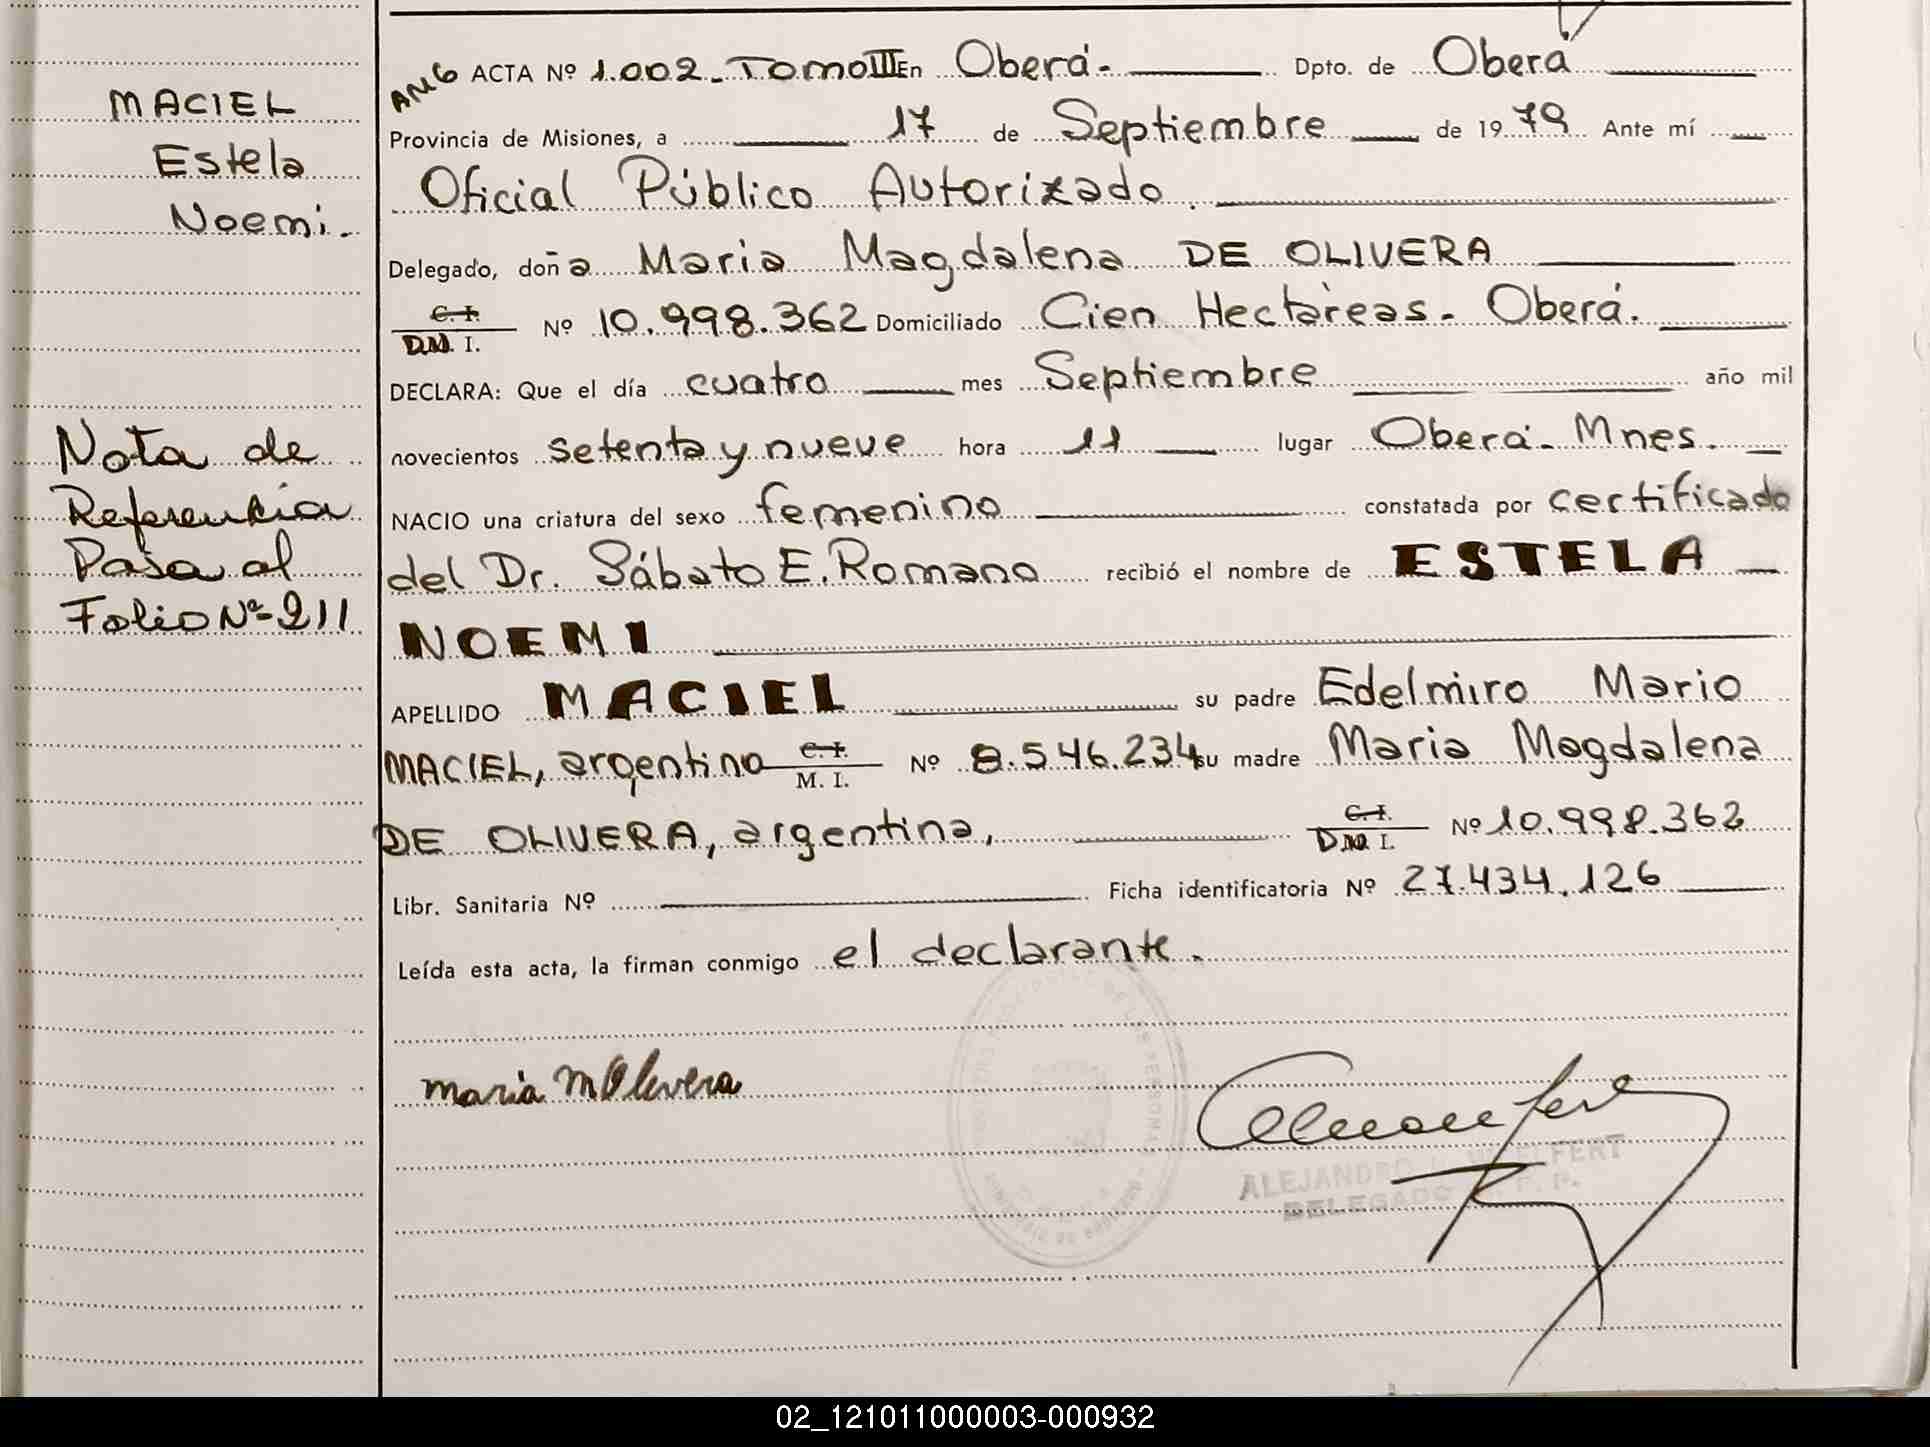 MACIEL
Estela
Noemi.
Nota de
Referencia
Pasa al
Folio Nº 211
ACTA Nº 1.002_ Tomo III En Oberá. Dpto. de Oberá
Provincia de Misiones, a 17 de Septiembre de 1979 Ante mí
Oficial Público Autorizado.
Delegado, doña Maria Magdalena DE OLIVERA
C. I. D.N. I. Nº 10.998.362 Domiciliado Cien Hectáreas - Oberá.
DECLARA: Que el día cuatro mes Septiembre año mil
novecientos setenta y nueve hora 11 lugar Oberá - Mnes.
NACIO una criatura del sexo femenino constatada por certificado
del Dr. Sábato E. Romano recibió el nombre de ESTELA
NOEMI
APELLIDO MACIEL su padre Edelmiro Mario
MACIEL, argentino C. I. M. I. Nº 8.546.234 su madre Maria Magdalena
DE OLIVERA, argentina, C. I. D.N. I. Nº 10.998.362
Libr. Sanitaria Nº Ficha identificatoria Nº 27.434.126
Leída esta acta, la firman conmigo el declarante.
maria M Olivera
ALEJANDRO WOELFERT
DELEGADO
02_121011000003-000932